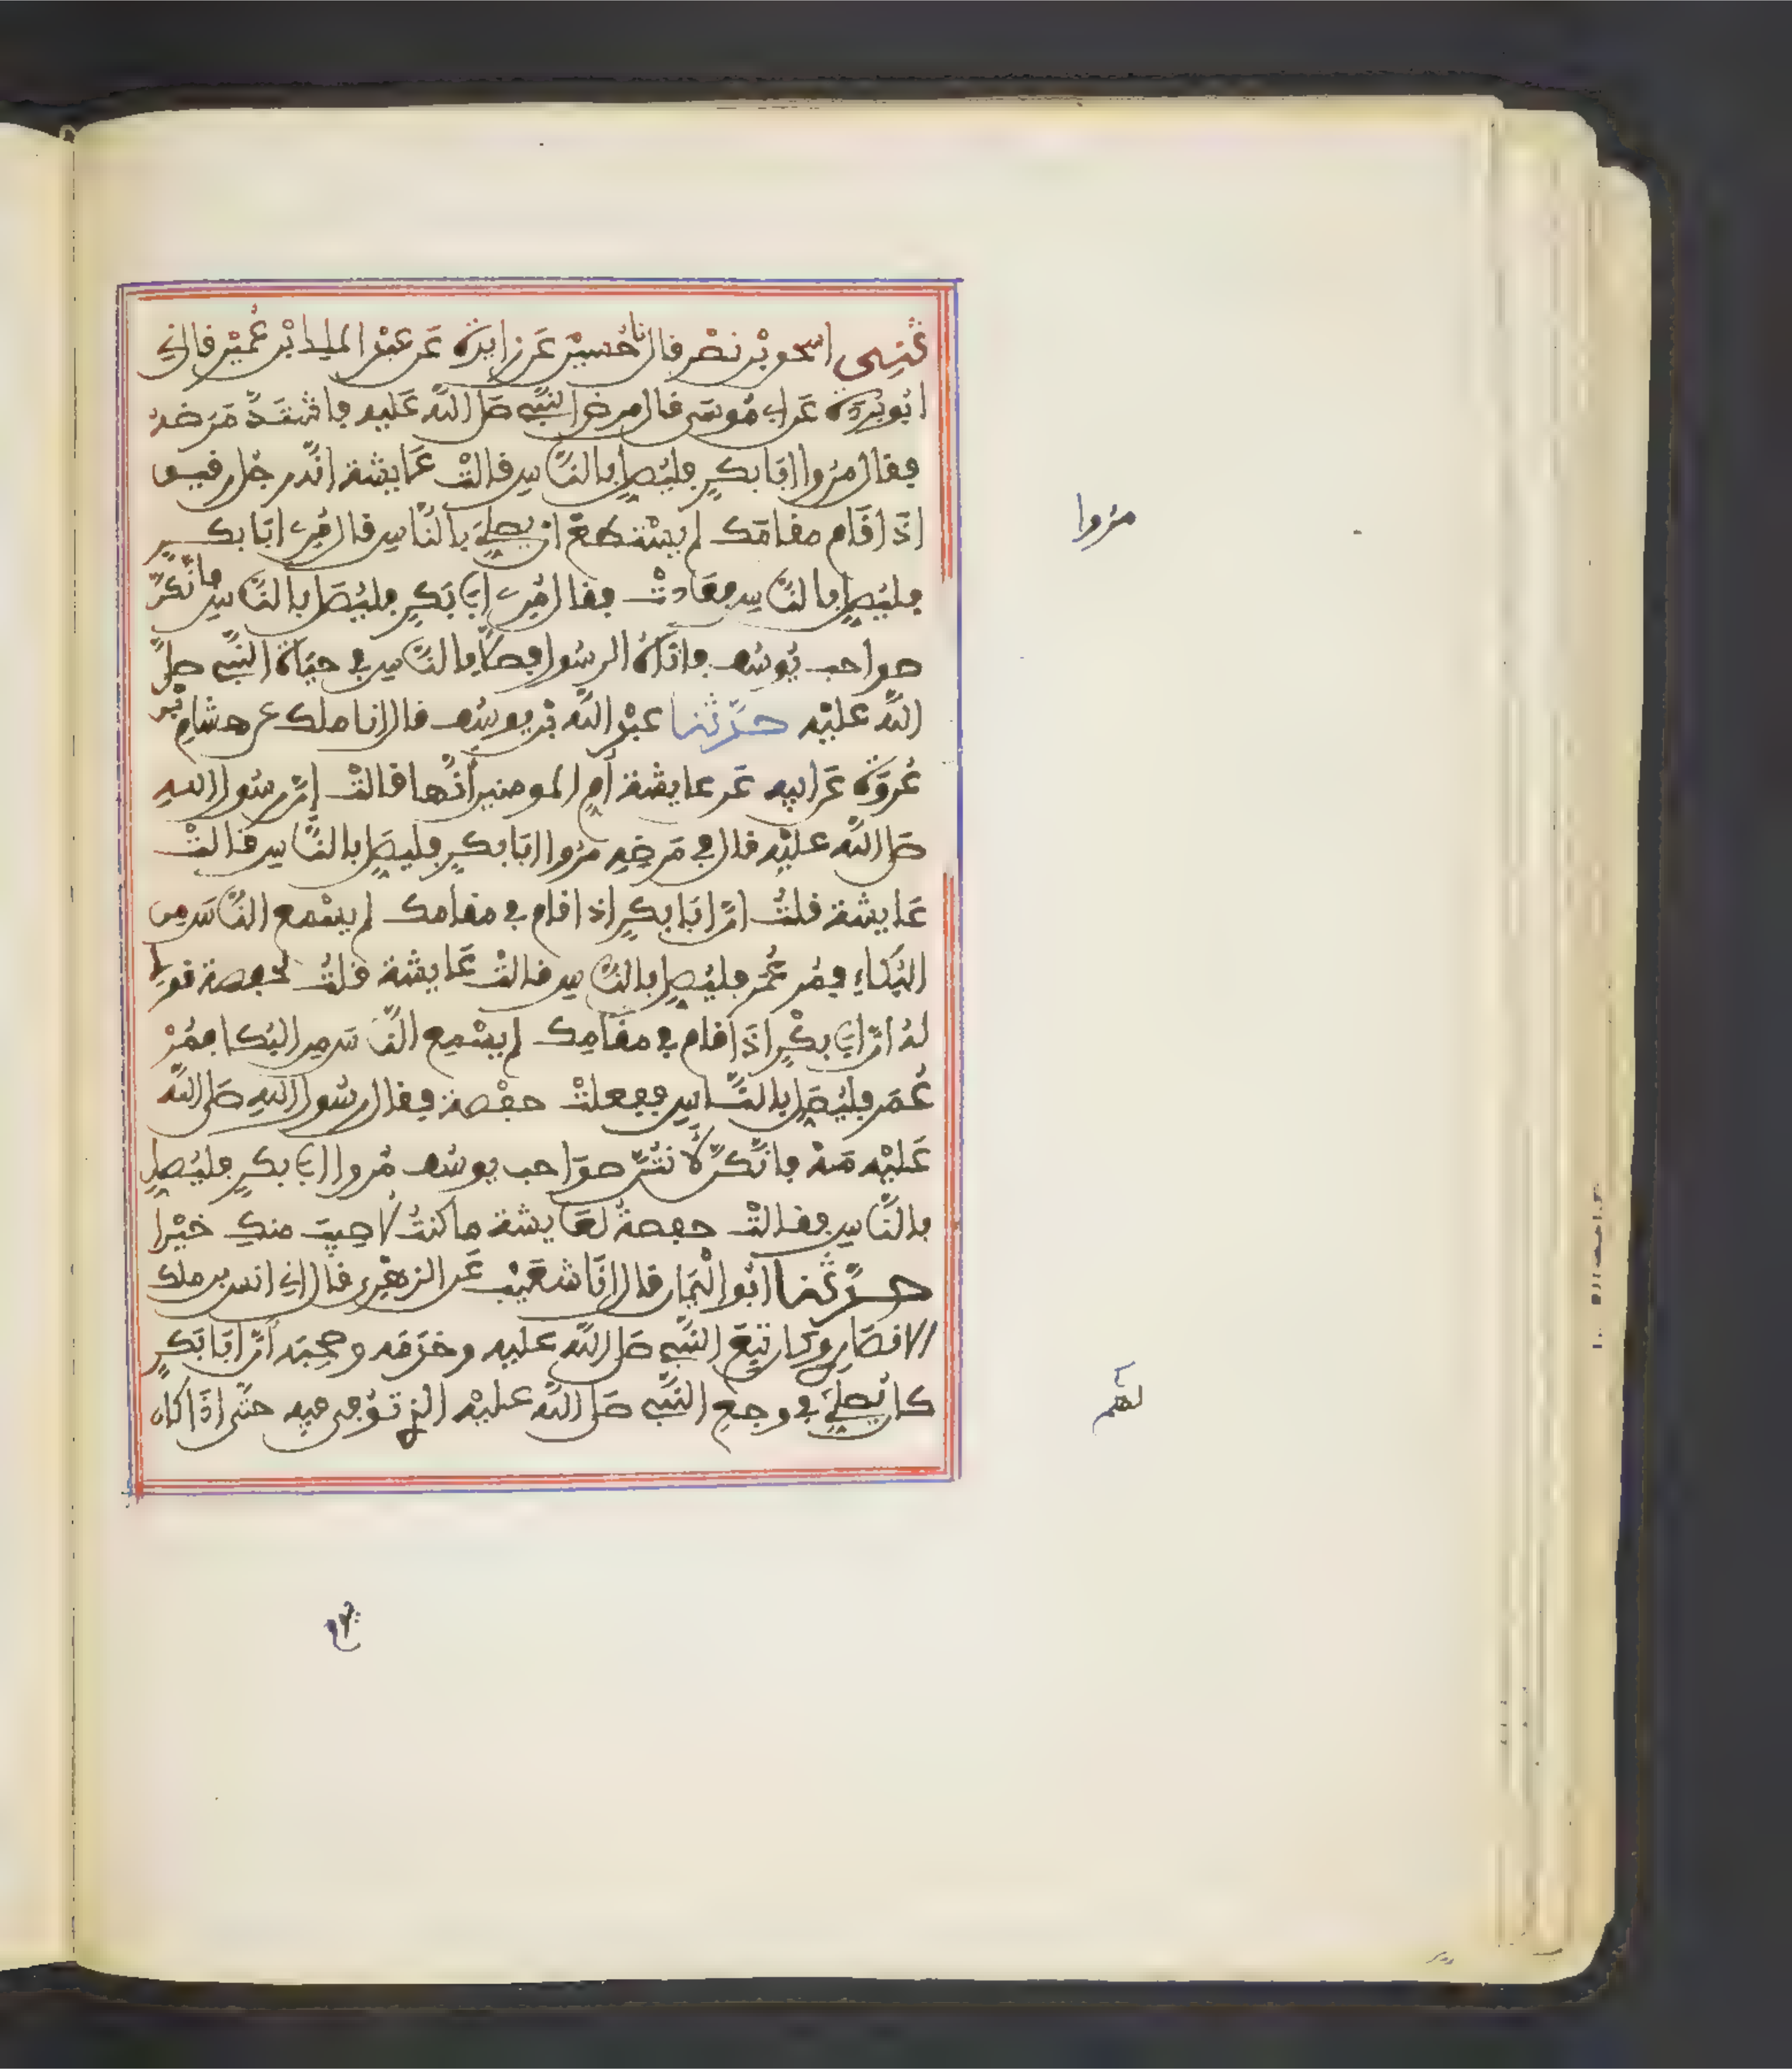 ثنى اسحق بن نصر قال نا حُسين عن زايدة عن عبد الملك بن عُمير قال ني
ابُو بردة عن ابي مُوسى قال مرض النبي صلى الله عليه فاشتدّ مَرضهُ
فقال مرُوا ابَا بكرٍ فليُصلِ بالنّاسِ قالتْ عَايشة انّه رجُل رقيق
اذَا قَام مقامَك لم يسْتطعَ ان يصليَ بالنّاسِ قال مُرِي ابَا بكرٍ
فليُصلِ بالنّاسِ فعَادتْ فقال مُرِي ابَي بَكرٍ فليُصَل بالنّاسِ فانّكنّ
صواحب يُوسُف فاتاهُ الرسُول فصلّى بالنّاسِ في حيَاة النّبي صلى
الله عليْه حدّثنا عبْد الله بْن يوسُف قال انا ملك عن هشامِ بْن
عُروَة عَن ابيه عَن عايشة أمِ المومنين أنّها قالتْ إنّ رسُول اللهِ
صَلى الله عليْه قال في مَرضِهِ مرُوا ابَا بكرٍ فليصَلِ بالنّاسِ قالتْ
عَايشة قلتُ انّ ابَا بكرٍ اذا قام في مقامك لم يسْمع النّاسَ مِن
البُكاءِ فمُر عُمَر فليُصلِ بالنّاسِ قالتْ عَايشة قلتُ لحفصة قولي
لهُ انّ ابَي بكْرٍ اذَا قام في مقَامِك لم يسْمِع النّاسَ من البُكا فمُرْ
عُمَر فليُصَلِ بالنّاسِ ففعلتْ حفْصة فقال رسُول اللهِ صَلى الله
عَليْه مَهْ فانّكنّ لأنتُنّ صوَاحب يوسُف مُروا ابَي بكرٍ فليُصلِ
بالنّاسِ فقالتْ حفصةُ لعَايشة ما كنتُ لاصِيبَ منكِ خيْرا
حدّثنا ابُو اليْمان قال انَا شعَيْب عَن الزهْرِي قال ني انس بن ملك
الانصَارِي وكان تبِعَ النّبي صَلى الله عليه وخدَمَه وصحِبَه أنّ ابَا بَكرٍ
كان يُصلِيَ في وجعِ النّبي صَلى الله عليْه الذي تُوُفي فيه حتّى اذَا كان
مرُوا
لهم